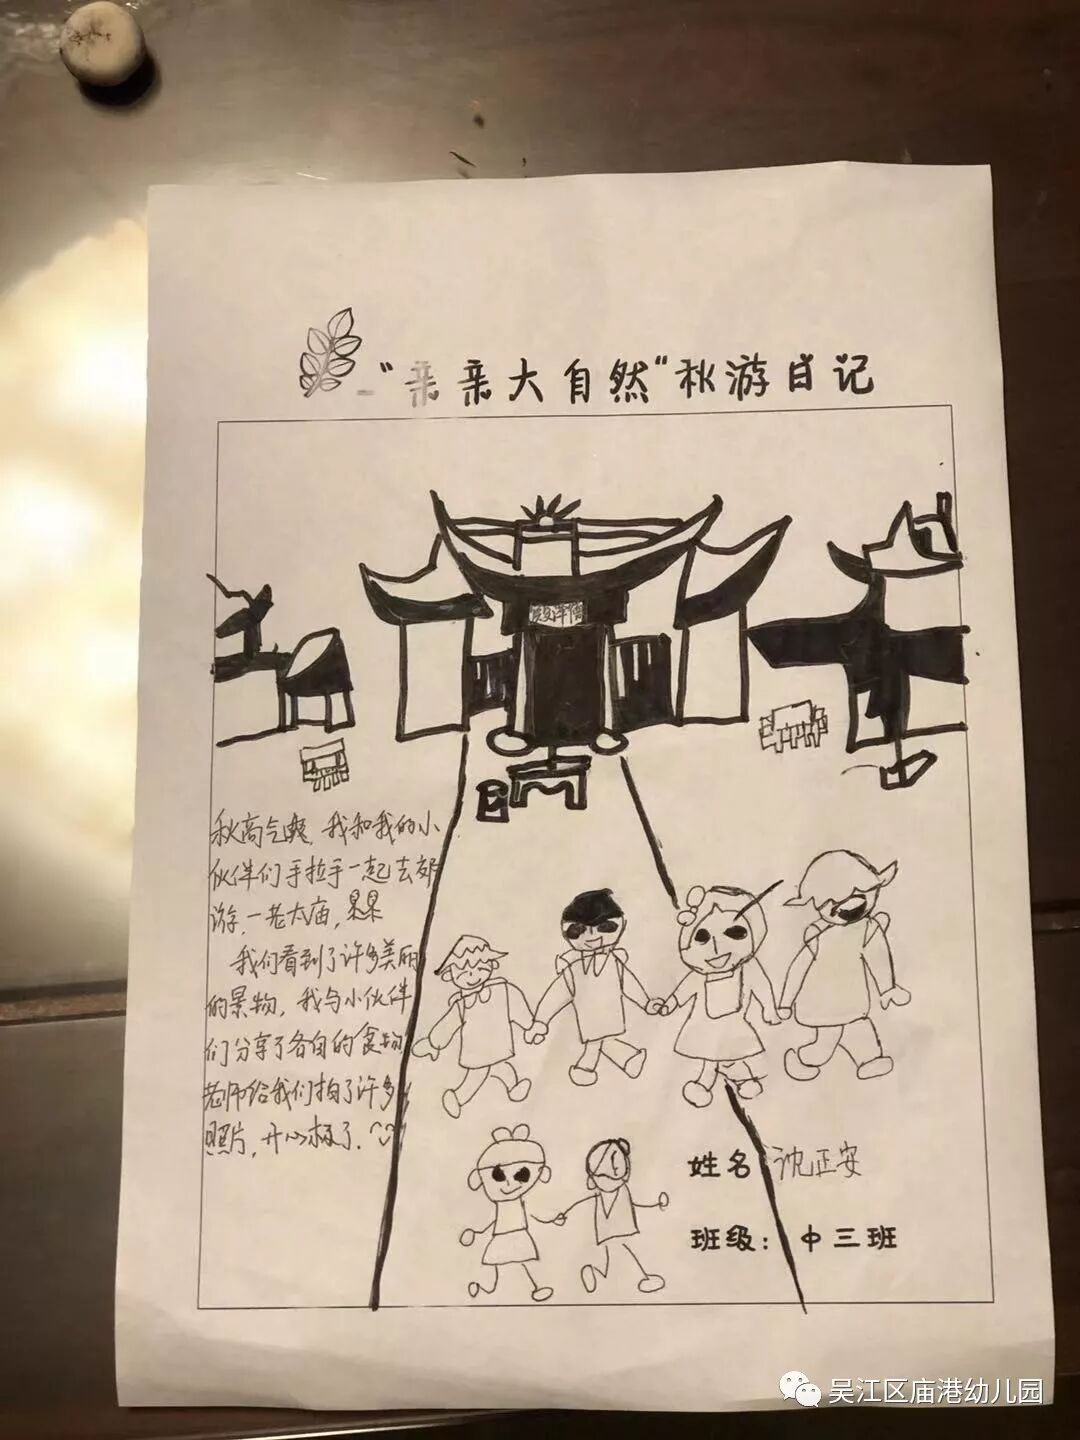 "亲亲大自然"秋游日记
秋高气爽,我和我的小
伙伴们手拉手一起去郊
游,一老太庙,
我们看到了许多美丽
的景物,我与小伙伴
们分享了各自的食物
老师给我们拍了许多
照片,开心极了.
姓名 沈正安
班级:中三班
吴江区庙港幼儿园